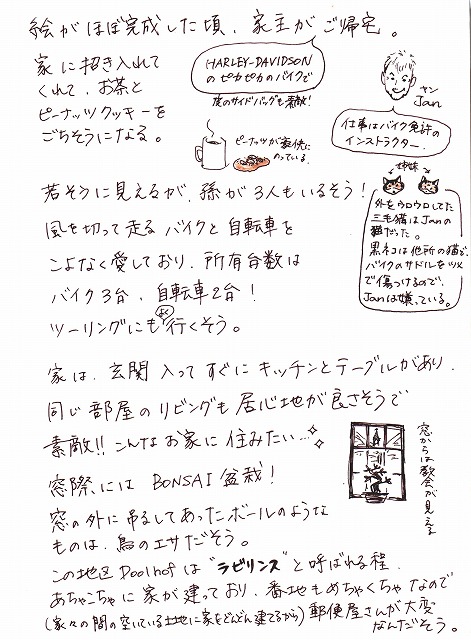 絵がほぼ完成した頃、家主がご帰宅。
家に招き入れて
くれて、お茶と
ピーナッツクッキーを
ごちそうになる。
HARLEY-DAVIDSON
のピカピカのバイクで
皮のサイドバッグも素敵!
ピーナッツが豪快に
のっている。
ヤン
Jan
仕事はバイク免許の
インストラクター。
若そうに見えるが、孫が3人もいるそう!
風を切って走るバイクと自転車を
こよなく愛しており、所有台数は
バイク3台、自転車2台!
ツーリングにもよく行くそう。
姉妹
外をウロウロしてた
三毛猫はJanの
猫だった。
黒ネコは他所の猫で、
バイクのサドルをツメ
で傷つけるので、
Janは嫌っている。
家は、玄関入ってすぐにキッチンとテーブルがあり、
同じ部屋のリビングも居心地が良さそうで
素敵!!こんなお家に住みたい…
窓際にはBONSAI盆栽!
窓の外に吊るしてあったボールのような
ものは、鳥のエサだそう。
窓からは教会が見える
この地区Doolhofは"ラビリンス"と呼ばれる程、
あちゃこちゃに家が建っており、番地もめちゃくちゃなので
(家々の間の空いている土地に家をどんどん建てるから)郵便屋さんが大変
なんだそう。